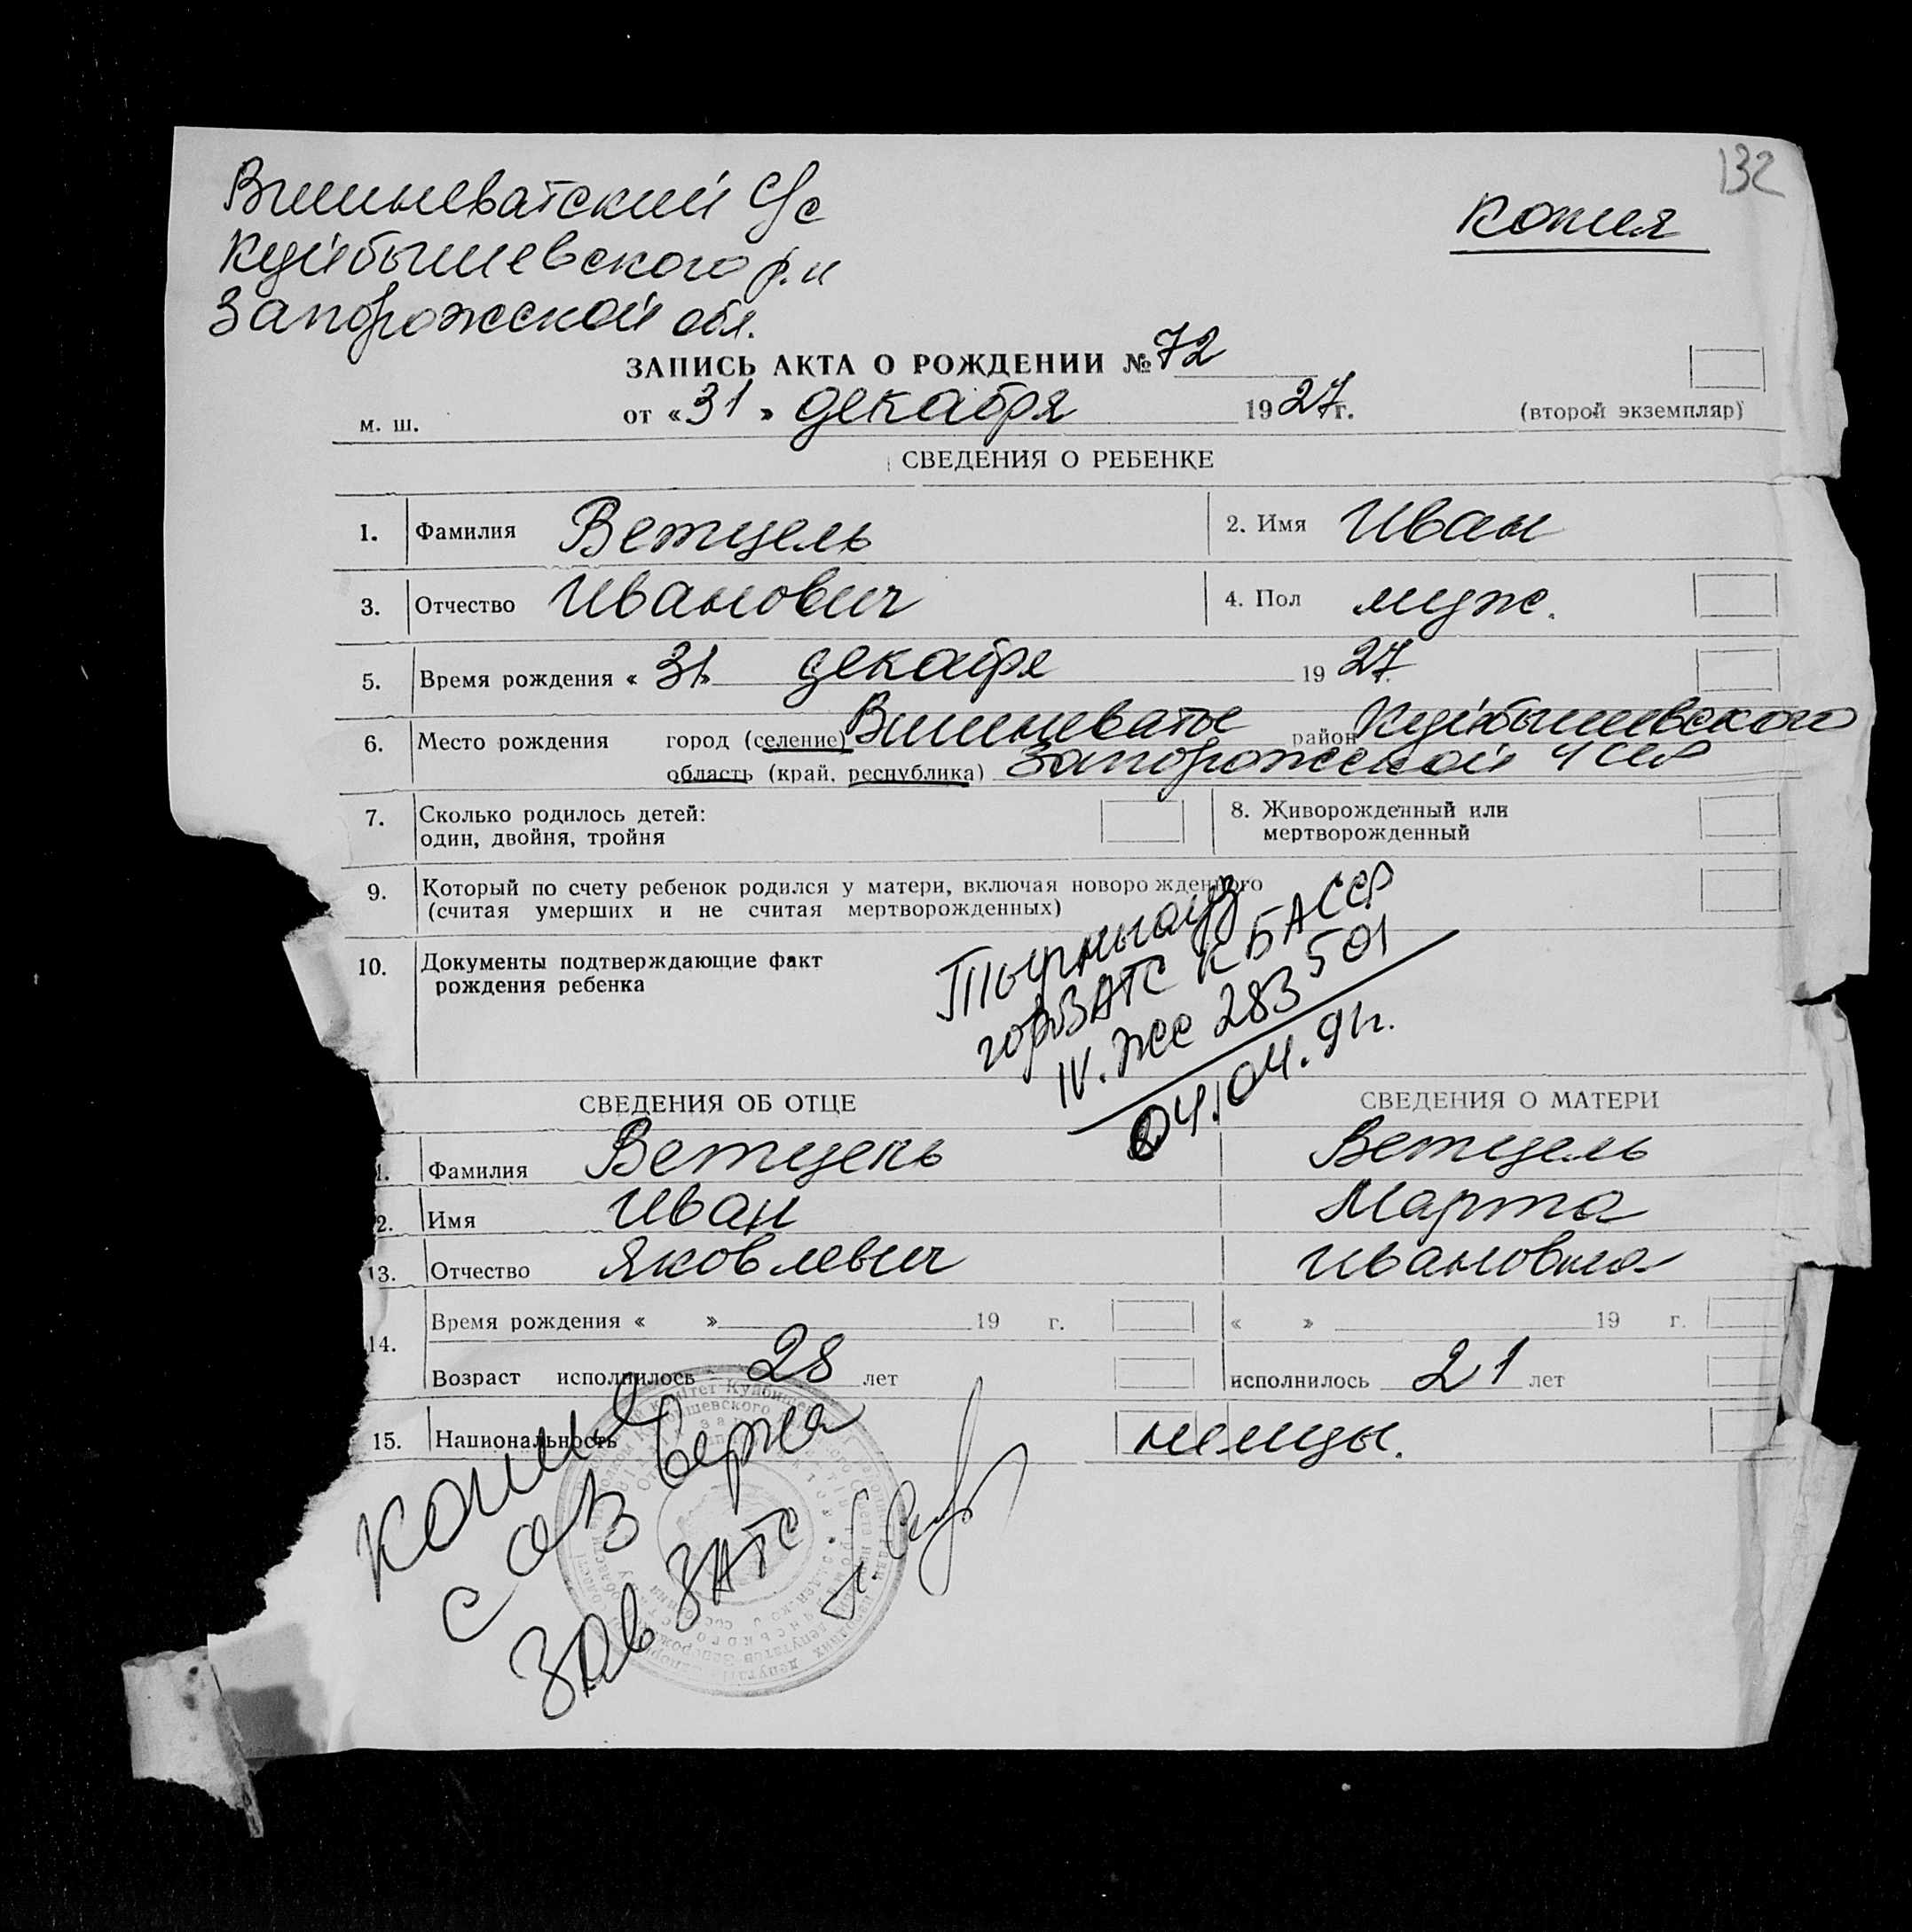 132
Вишневатский с/с
Куйбышевского р.н
Запорожской обл.
копия
ЗАПИСЬ АКТА О РОЖДЕНИИ № 72
м. ш.
от «31» декабря 1927г.
(второй экземпляр)
СВЕДЕНИЯ О РЕБЕНКЕ
1. Фамилия Ветцель 2. Имя Иван
3. Отчество Иванович 4. Пол муж.
5. Время рождения «31» декабря 1927
6. Место рождения город (селение) Вишневатое район Куйбышевского
область (край, республика) Запорожской УССР
7. Сколько родилось детей: 8. Живорожденный или
один, двойня, тройня мертворожденный
9. Который по счету ребенок родился у матери, включая новорожденного
(считая умерших и не считая мертворожденных)
10. Документы подтверждающие факт
рождения ребенка
Тырныауз
горЗАГС КБАССР
IV. ЖС 283501
04.04.91г.
СВЕДЕНИЯ ОБ ОТЦЕ СВЕДЕНИЯ О МАТЕРИ
1. Фамилия Ветцель Ветцель
2. Имя Иван Марта
13. Отчество Яковлевич Ивановна
14. Время рождения « » 19 г. « » 19 г.
Возраст исполнилось 28 лет исполнилось 21 лет
15. Национальность немцы.
копия
верна
Зав ЗАГС